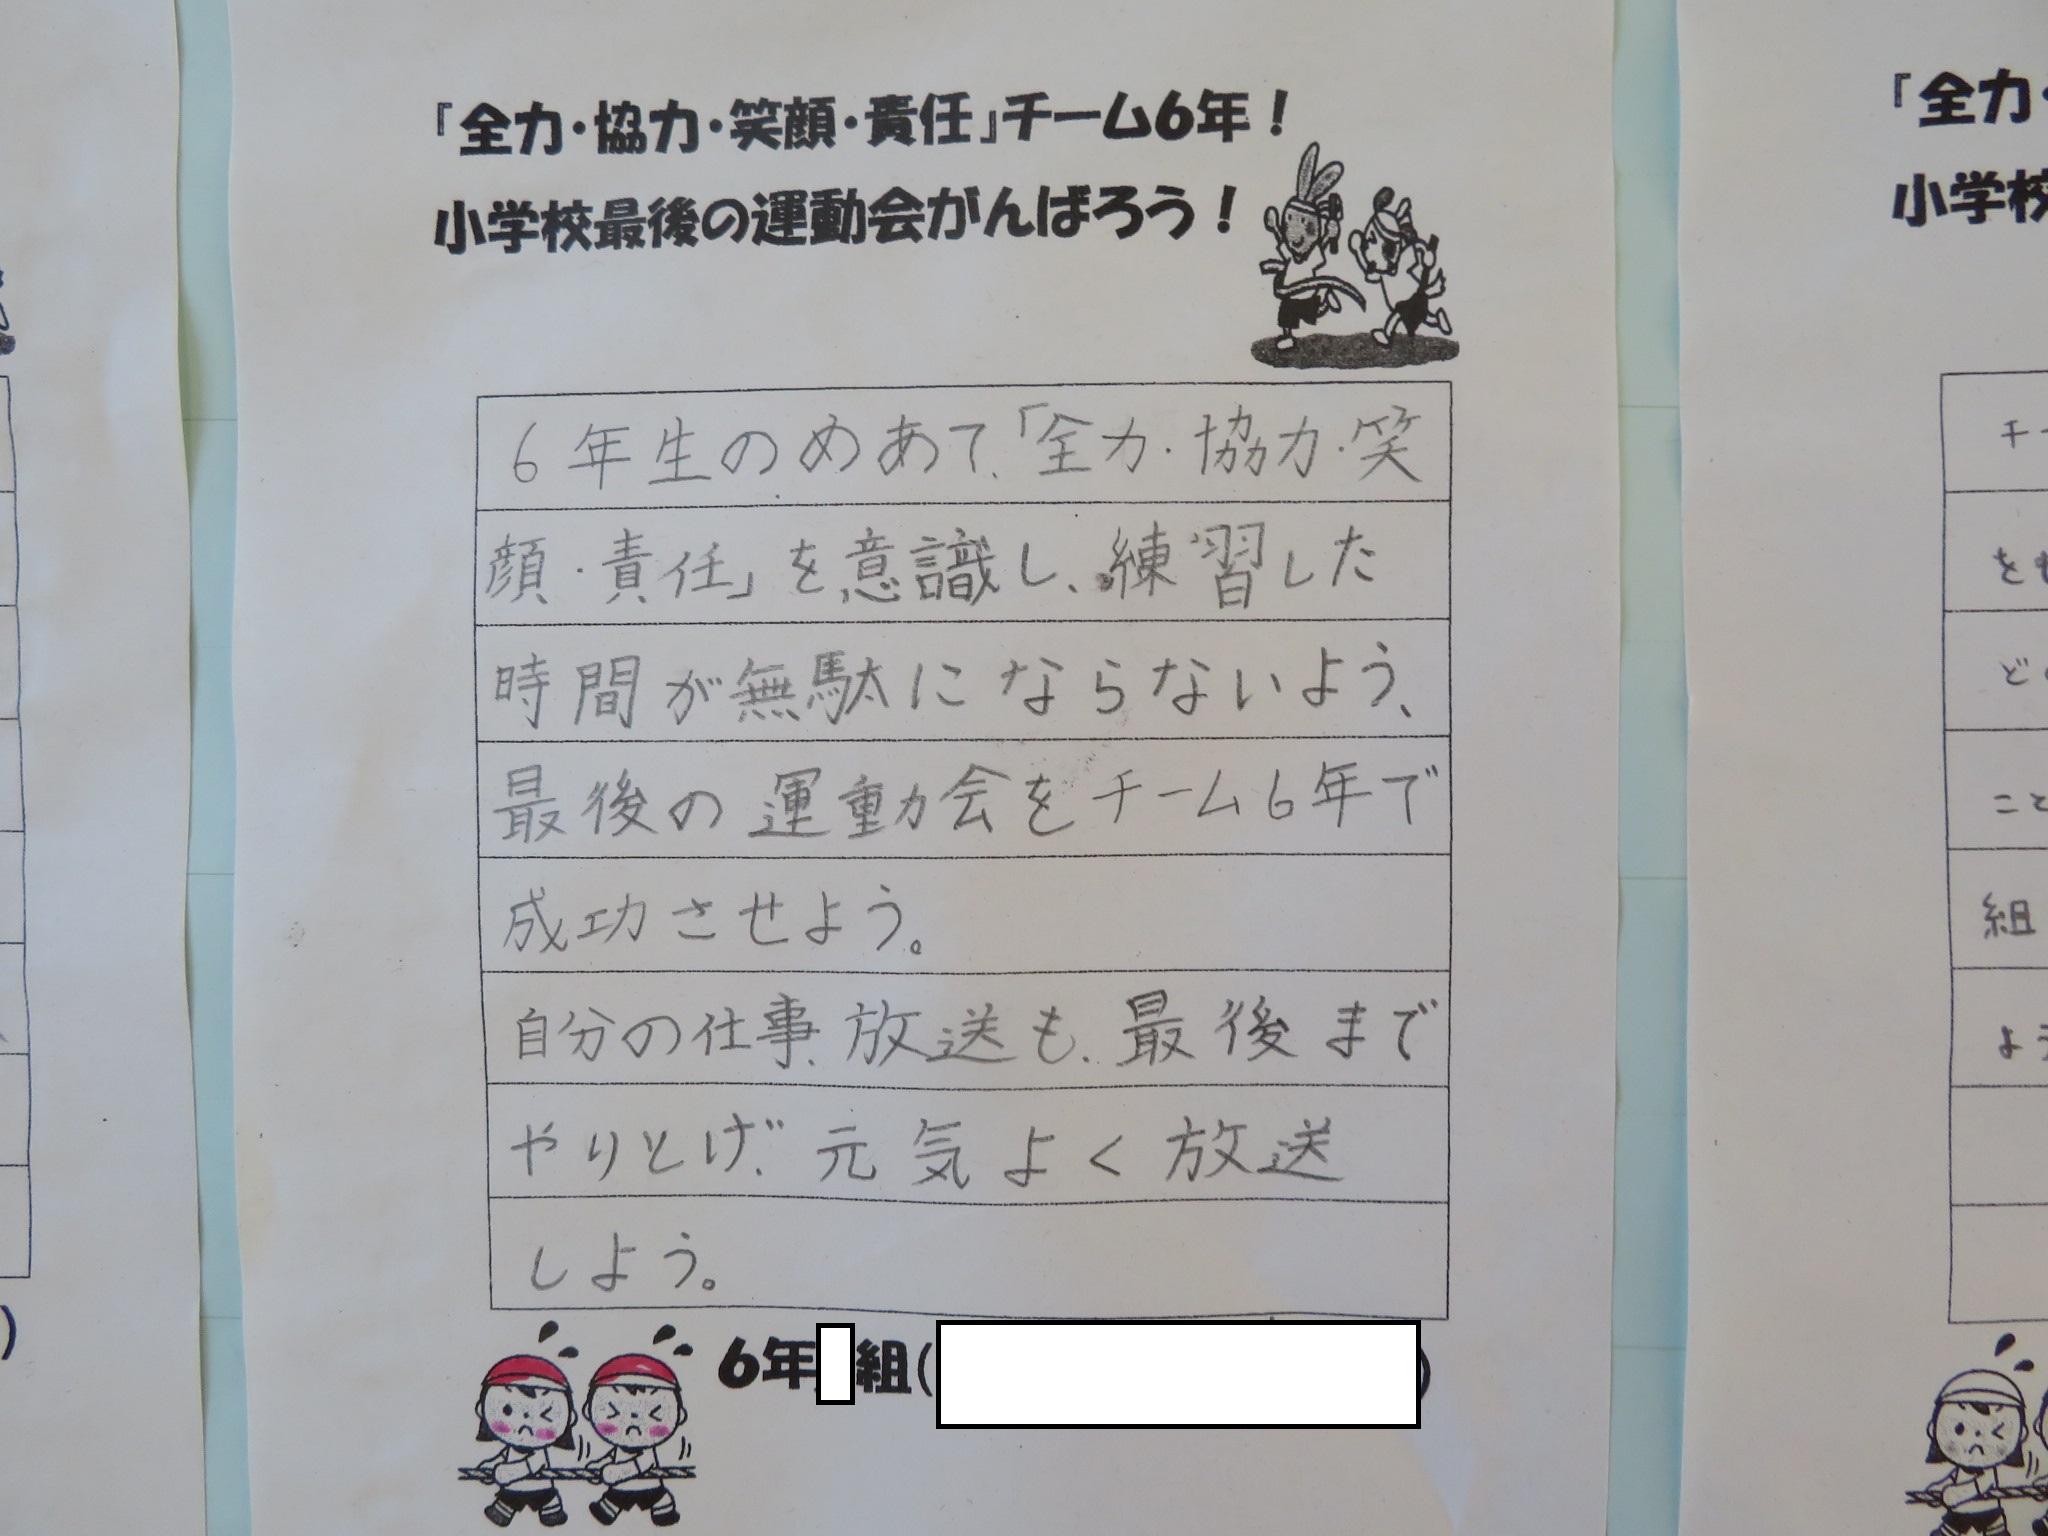 『全力・協力・笑顔・責任』チーム6年！
小学校最後の運動会がんばろう！
6年生のめあて、「全力・協力・笑
顔・責任」を意識し、練習した
時間が無駄にならないよう、
最後の運動会をチーム6年で
成功させよう。
自分の仕事、放送も、最後まで
やりとげ、元気よく放送
しよう。
6年 組( )
『全力・
小学校
チー
をも
ど
こと
組
よう
)